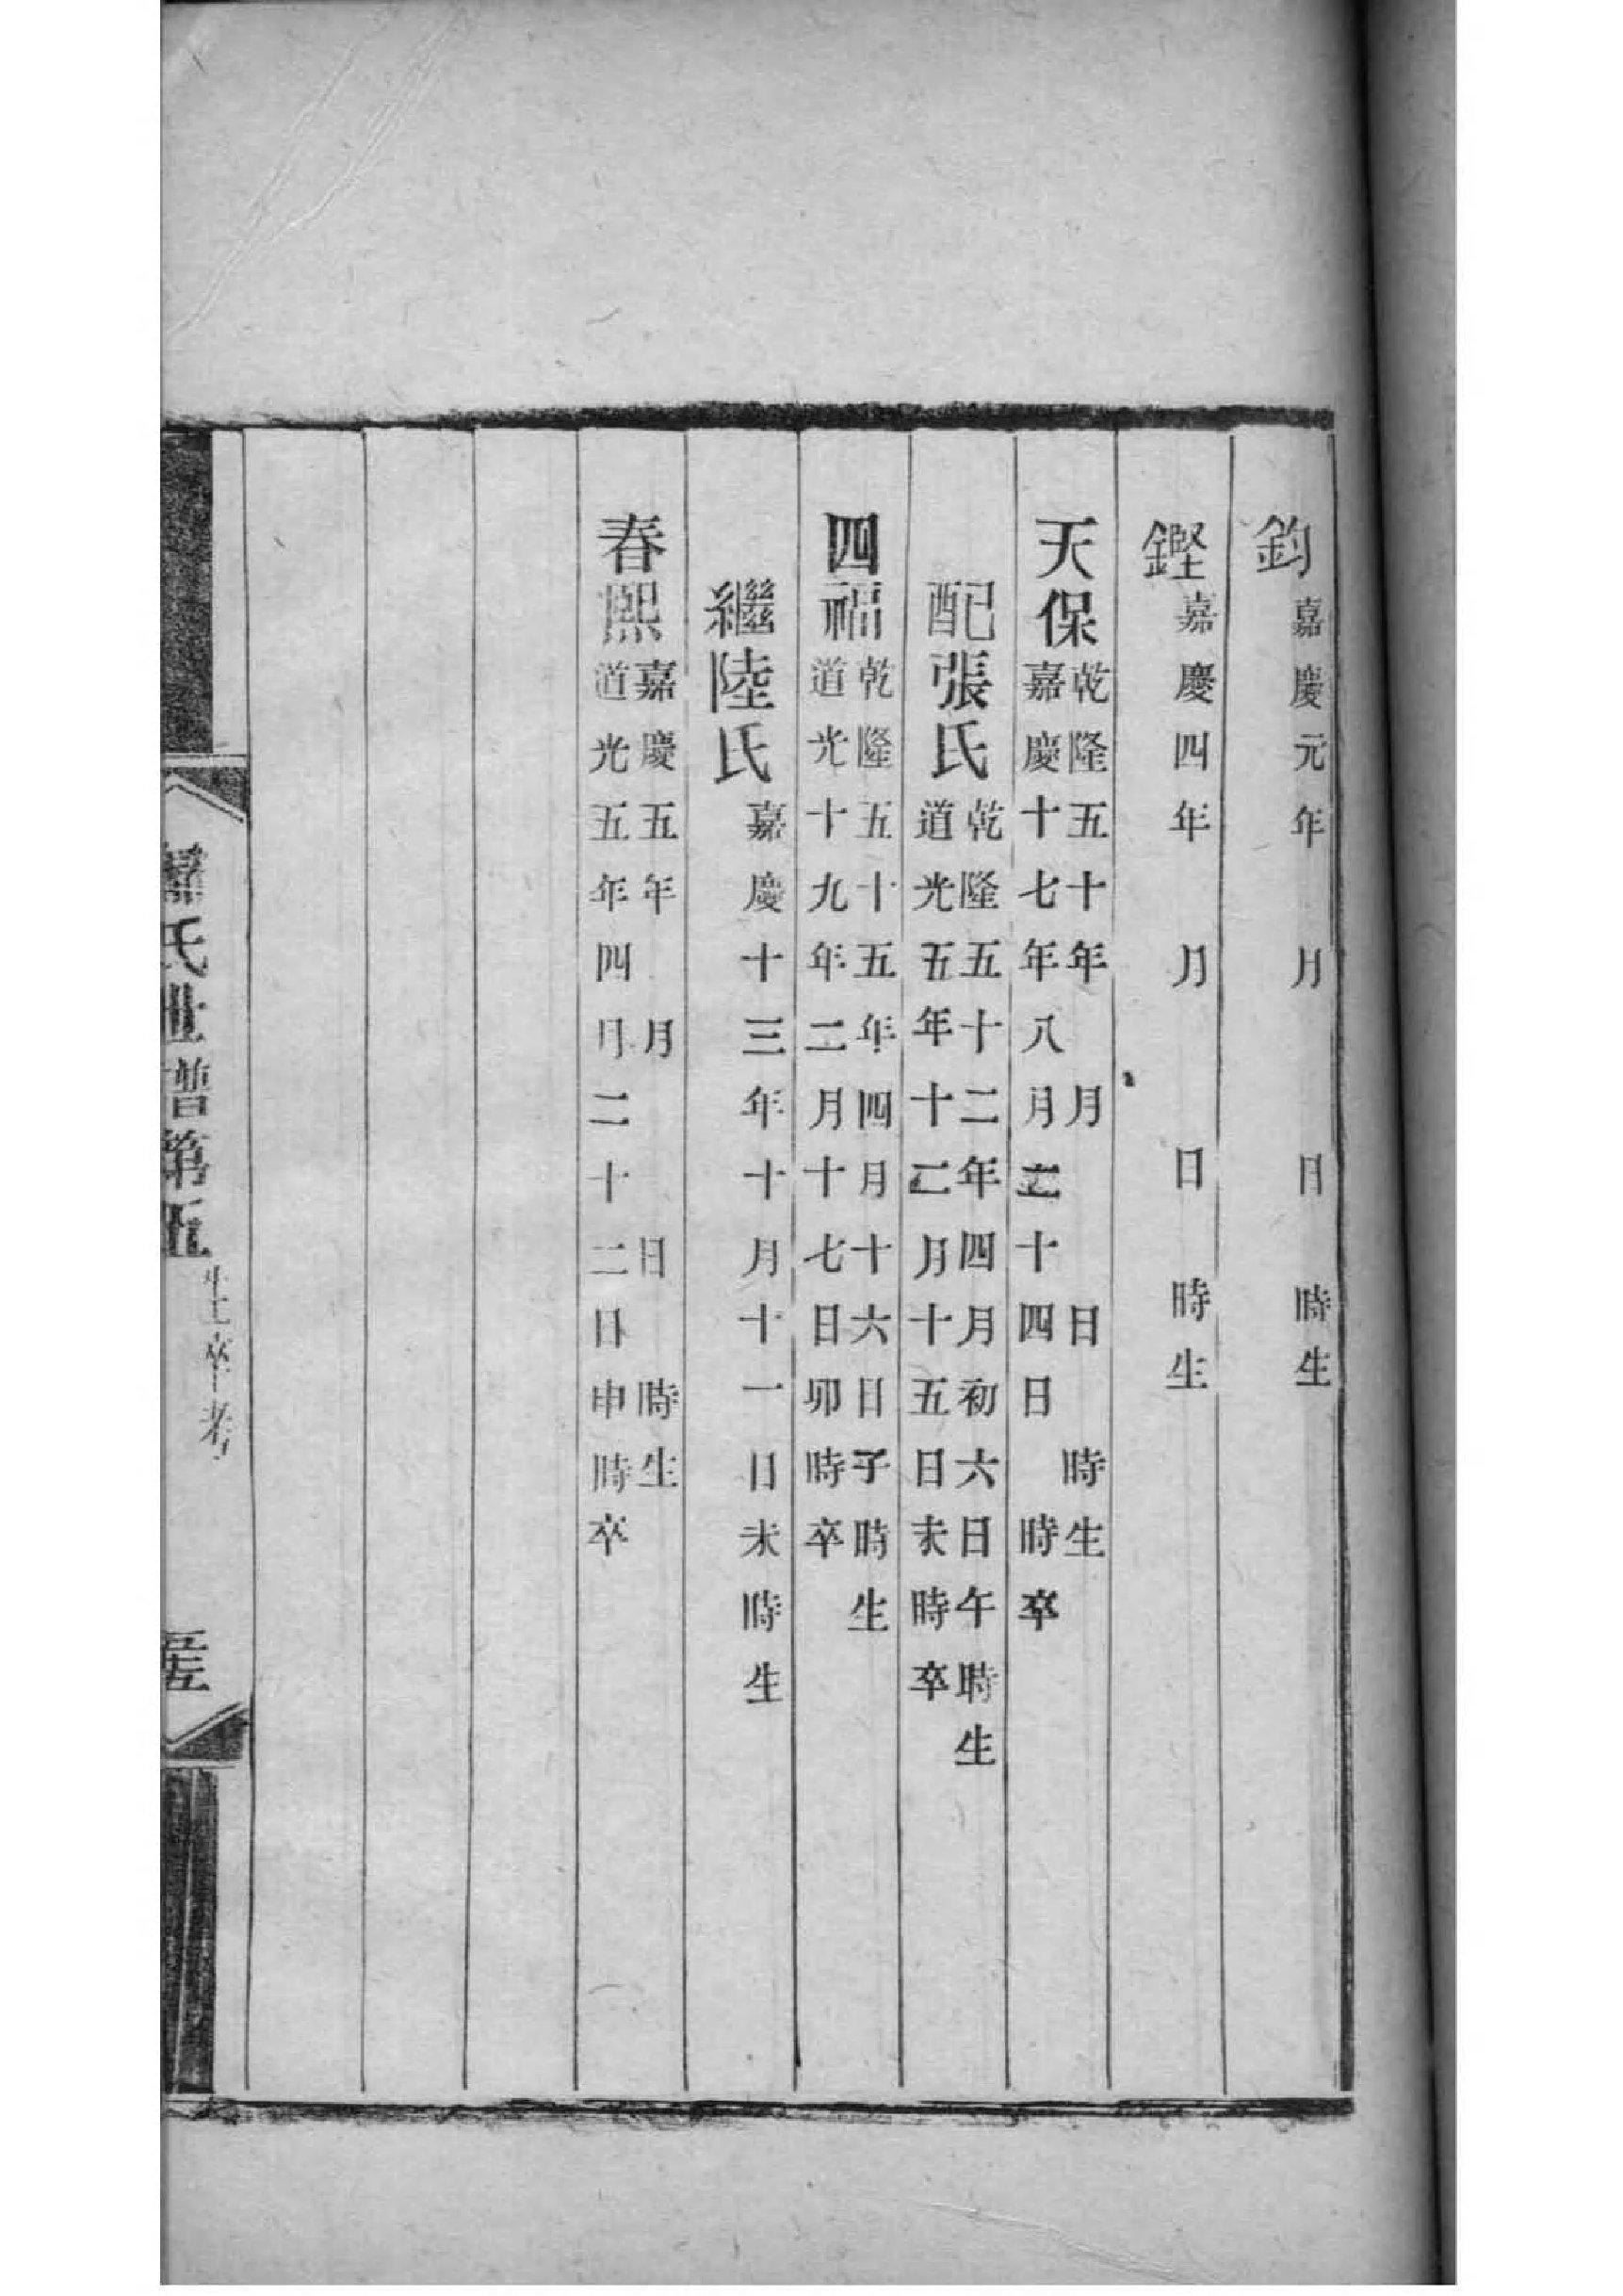 鈞嘉慶元年 月 日 時生
鏗嘉慶四年 月 日 時生
天保乾隆五十年 月 日 時生
嘉慶十七年八月二十四日 時卒
配張氏乾隆五十二年四月初六日午時生
道光五年十二月十五日未時卒
四福乾隆五十五年四月十六日子時生
道光十九年二月十七日卯時卒
繼陸氏嘉慶十三年十月十一日未時生
春熙嘉慶五年 月 日 時生
道光五年四月二十二日申時卒
氏世譜第五 生卒考